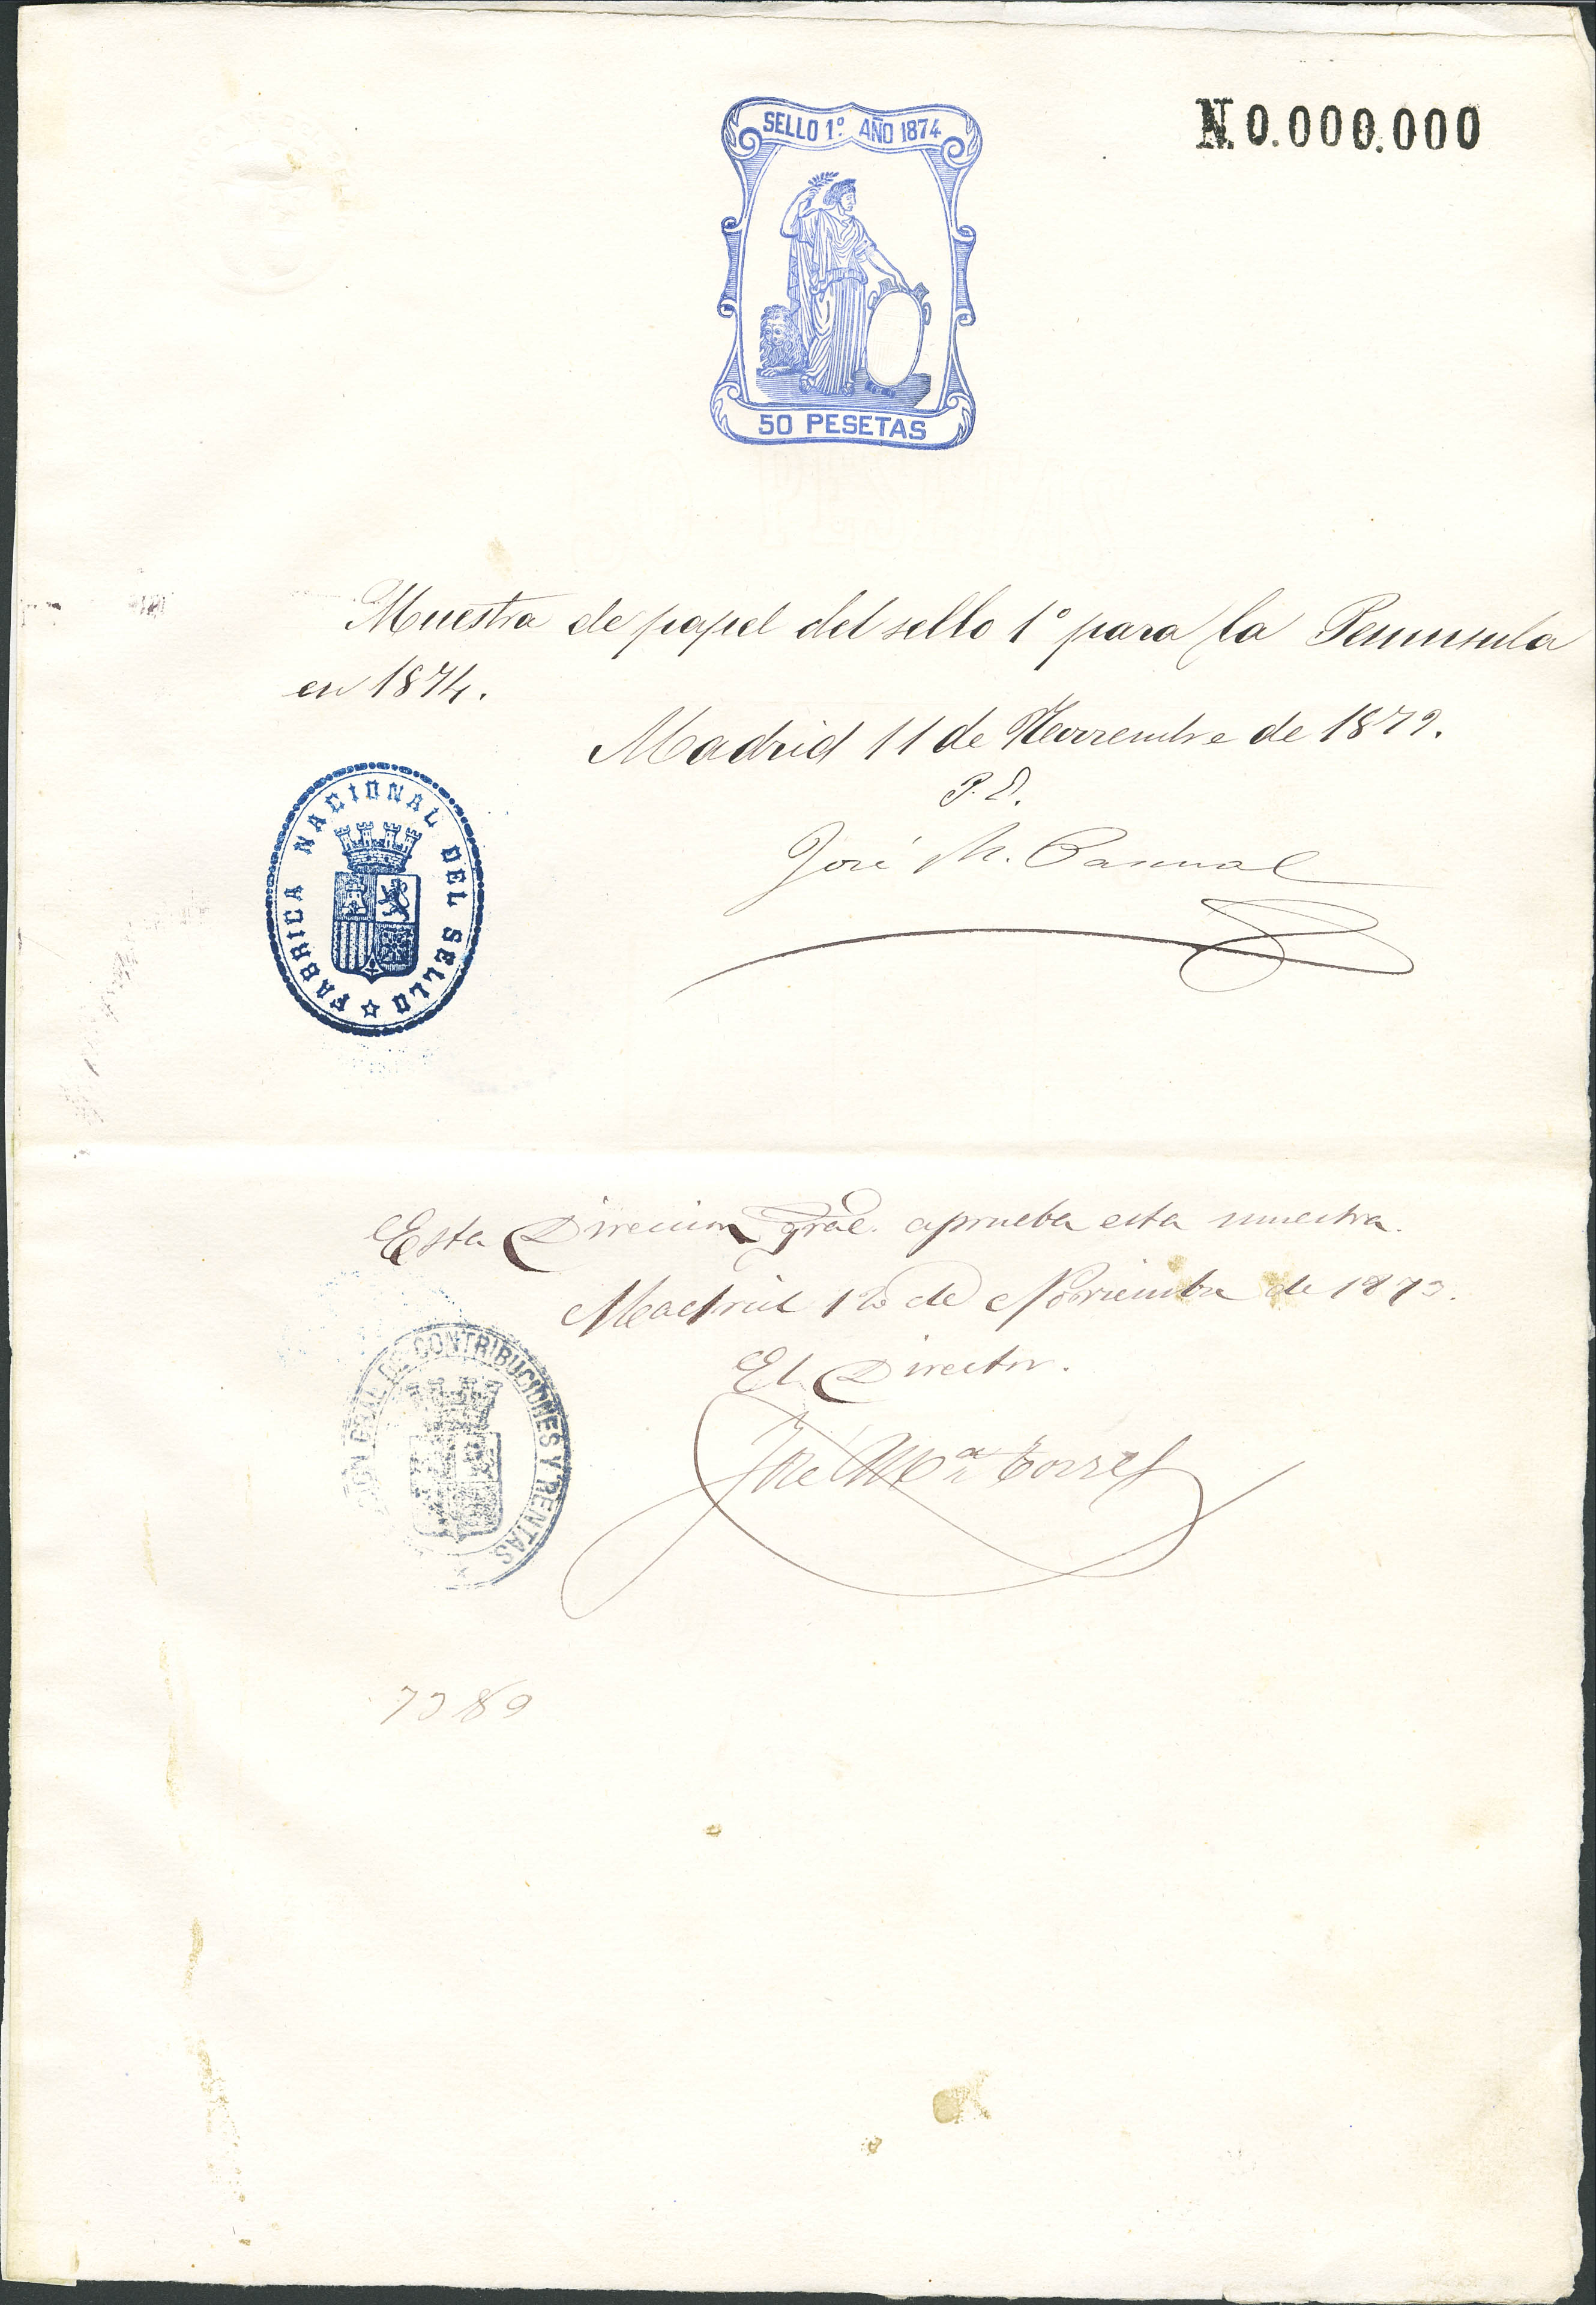 SELLO 1º AÑO 1874
N. 0.000.000
50 PESETAS
Muestra de papel del sello 1º para la Peninsula
en 1874.
Madrid 11 de Noviembre de 1873.
P. O.
José M. Pascual
FABRICA NACIONAL DEL SELLO
Esta Direccion gral. aprueba esta muestra.
Madrid 12 de Noviembre de 1873.
El Director.
José Mª Torres
GRAL DE CONTRIBUCIONES Y RENTAS